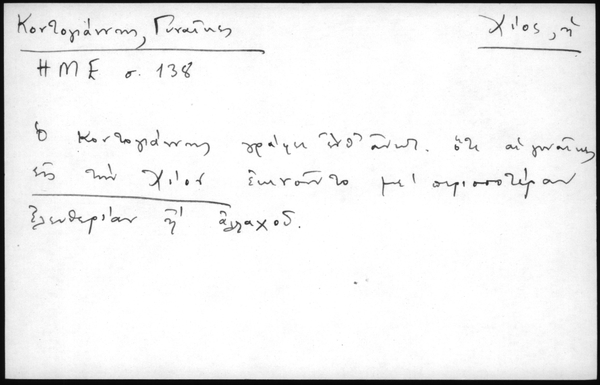 Κοντογιάννης, Γυναῖκες
Χίος, ἡ
ΗΜΕ σ. 138
Ὁ Κοντογιάννης γράφει ἐνθ' ἀνωτ. ὅτι αἱ γυναῖκες
εἰς τὴν Χίον ἐκινοῦντο μὲ περισσοτέραν
ἐλευθερίαν ἢ ἀλλαχοῦ.